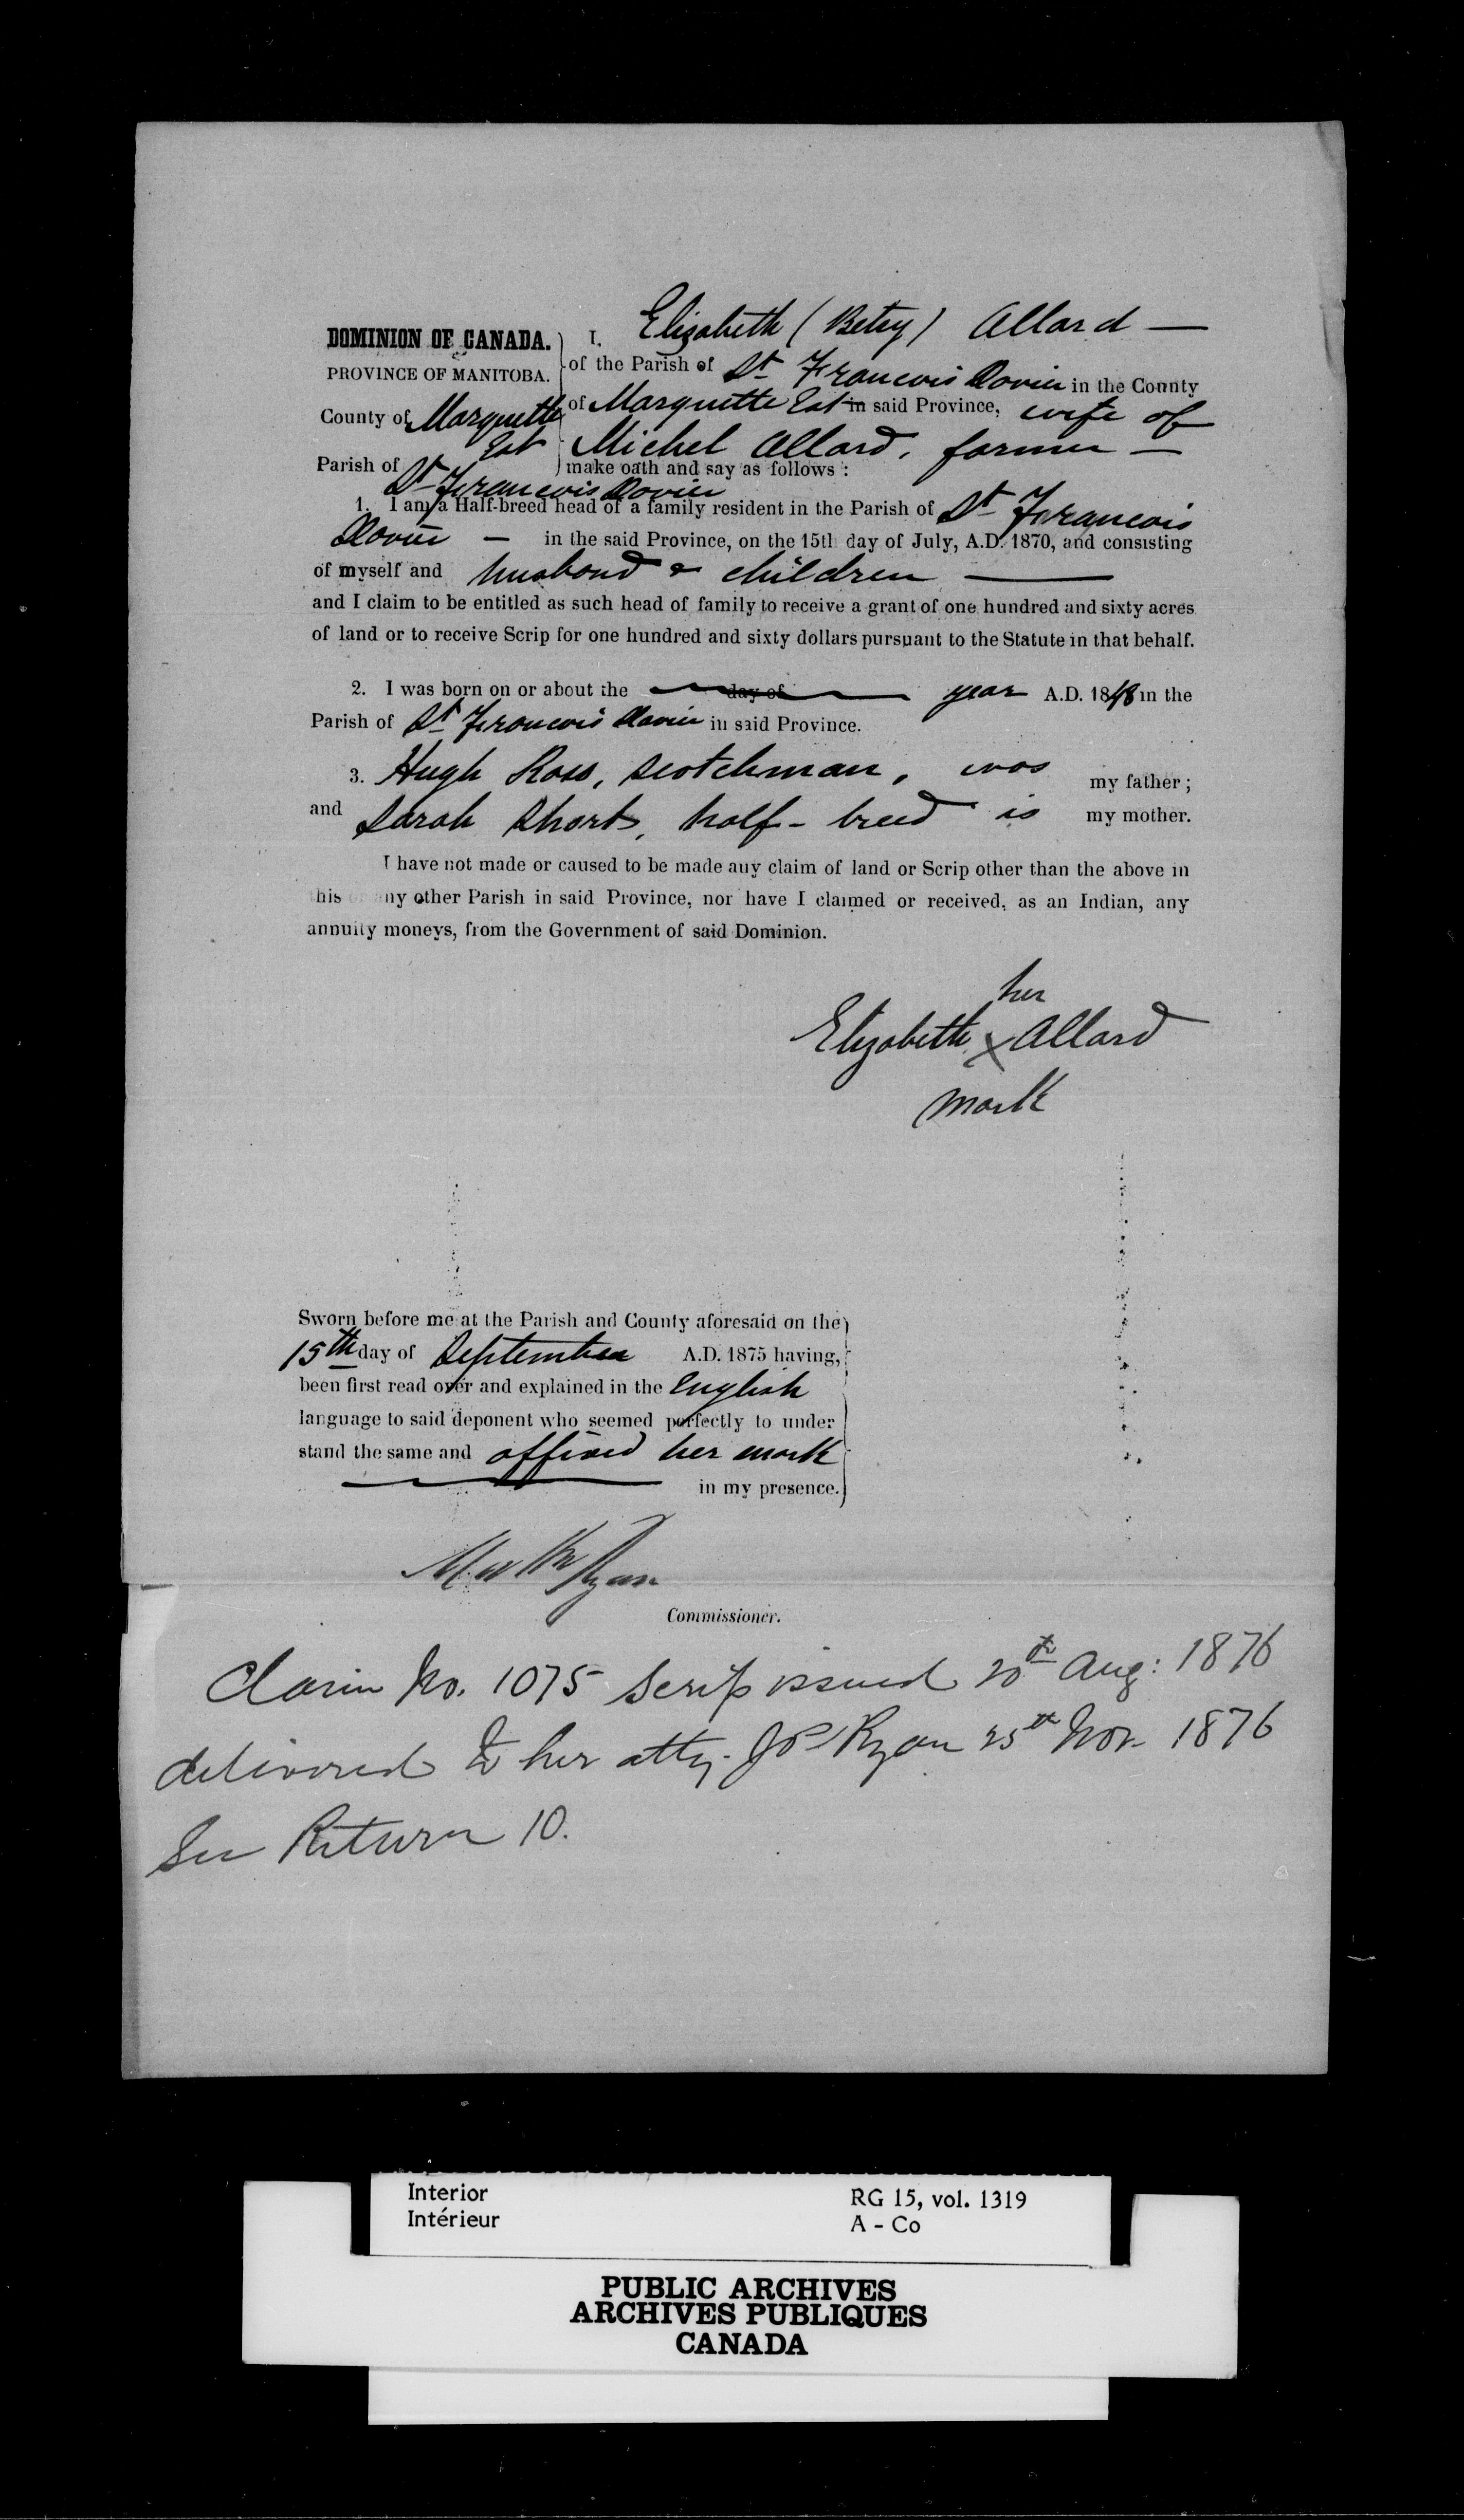 DOMINION OF CANADA.
PROVINCE OF MANITOBA.
County of Marquette
Est
Parish of
St Francois Xavier
I, Elizabeth (Betsy) Allard —
of the Parish of St Francois Xavier in the County
of Marquette Est in said Province, wife of
Michel Allard, farmer —
make oath and say as follows :
1. I am a Half-breed head of a family resident in the Parish of St Francois
Xavier — in the said Province, on the 15th day of July, A.D. 1870, and consisting
of myself and husband & children —
and I claim to be entitled as such head of family to receive a grant of one hundred and sixty acres
of land or to receive Scrip for one hundred and sixty dollars pursuant to the Statute in that behalf.
2. I was born on or about the day of year A.D. 1848 in the
Parish of St Francois Xavier in said Province.
3. Hugh Ross, Scotchman, was my father ;
and Sarah Short, half-breed is my mother.
I have not made or caused to be made any claim of land or Scrip other than the above in
this or any other Parish in said Province, nor have I claimed or received, as an Indian, any
annuity moneys, from the Government of said Dominion.
her
Elizabeth x Allard
mark
Sworn before me at the Parish and County aforesaid on the
15th day of September A.D. 1875 having,
been first read over and explained in the English
language to said deponent who seemed perfectly to under
stand the same and affixed her mark
in my presence.
Ryan
Commissioner.
Claim No. 1075 Scrip issued 20th Aug: 1876
delivered to her atty. JP Ryan 25th Nov. 1876
See Return 10.
Interior
Intérieur
RG 15, vol. 1319
A - Co
PUBLIC ARCHIVES
ARCHIVES PUBLIQUES
CANADA